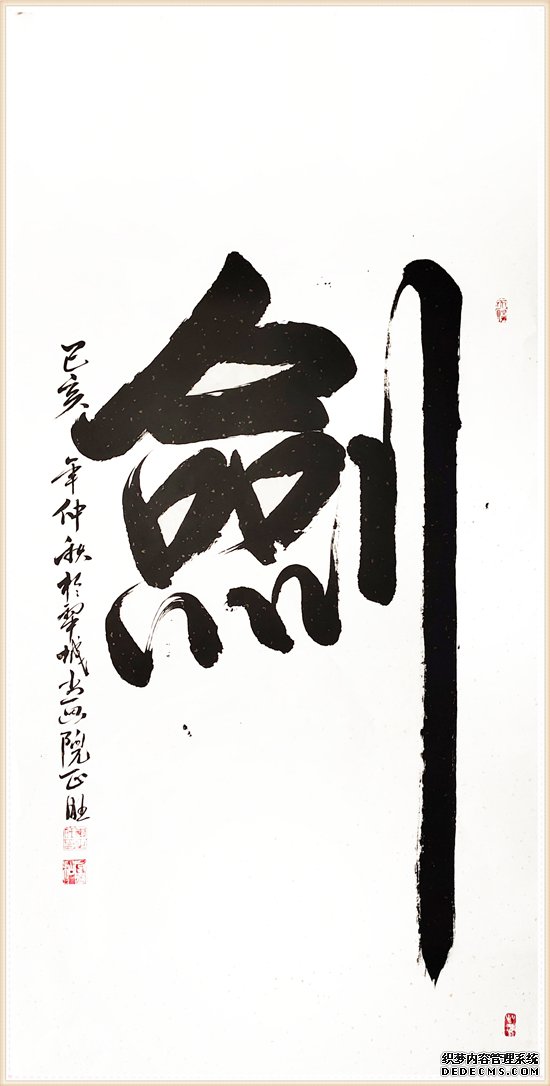 劍
己亥年仲秋於犂城书画院正胜
织梦内容管理系统
DEDECMS.COM